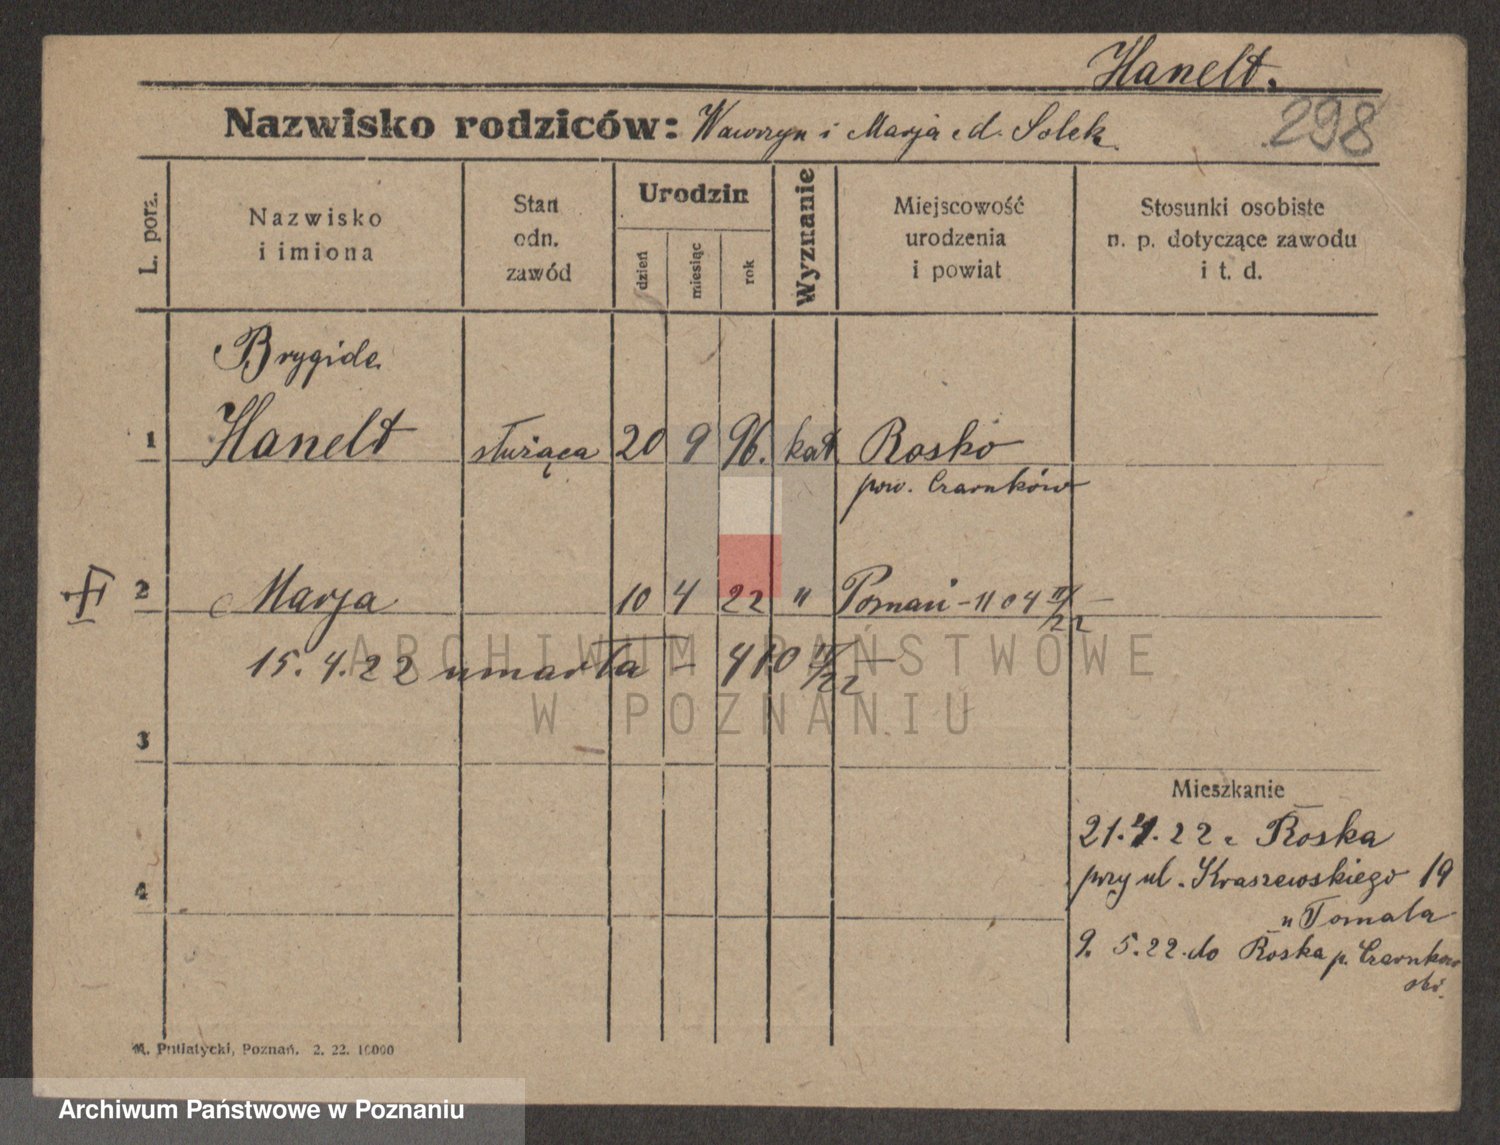 Hanelt.
298
Nazwisko rodziców: Wawrzyn i Marja d. Solek
L. porz.
Nazwisko
i imiona
Stan
odn.
zawód
Urodzin
dzień
miesiąc
rok
Wyznanie
Miejscowość
urodzenia
i powiat
Stosunki osobiste
n. p. dotyczące zawodu
i t. d.
Brygida
1 Hanelt służąca 20 9 96. kat Rosko
pow. Czarnków
2 Marja 10 4 22 " Poznań - 1104 IV/22 -
15.4.22 umarła - 410 IV/22 -
3
4
Mieszkanie
21.4.22 z Roska
przy ul. Kraszewskiego 19
u Tomala
9. 5.22 do Roska p. Czarnkow
ski.
M. Putiatycki, Poznań. 2. 22. 10000
ARCHIWUM PAŃSTWOWE
W POZNANIU
Archiwum Państwowe w Poznaniu